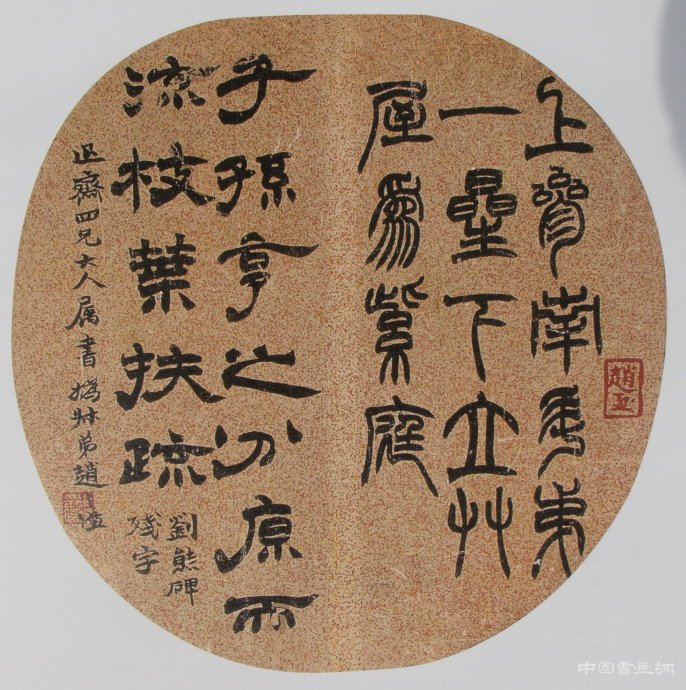 上參南斗弟
一星下立艸
屋爲紫庭
子孫享之分原而
流枝葉扶疏
劉熊碑
殘字
齋四兄大人属書撝叔弟趙之謙
中国書画網